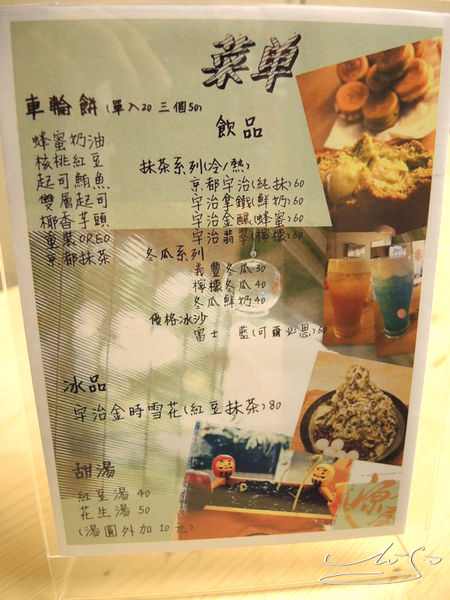 菜單
車輪餅(單入20 三個50)
蜂蜜奶油
核桃紅豆
起司鮪魚
雙層起司
椰香芋頭
重裝OREO
京都抹茶
飲品
抹茶系列(冷/熱)
京都宇治(純抹)60
宇治拿鐵(鮮奶)60
宇治金釀(蜂蜜)60
宇治翡翠(檸檬)60
冬瓜系列
義豐冬瓜30
檸檬冬瓜40
冬瓜鮮奶40
優格冰沙
富士.藍(可爾必思)60
冰品
宇治金時雪花(紅豆抹茶)80
甜湯
紅豆湯 40
花生湯 50
(湯圓外加10元)